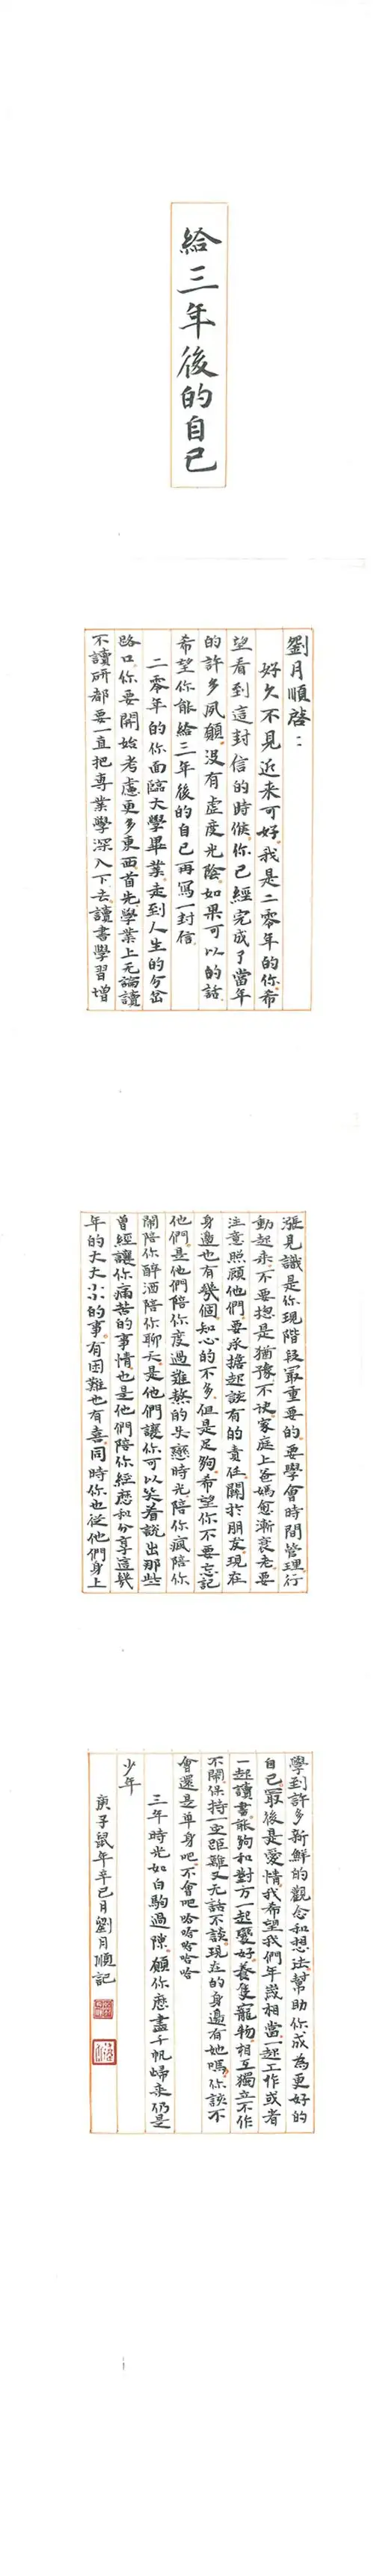 給三年後的自己
劉月順啓：
好久不見近来可好。我是二零年的你。希
望看到這封信的時候你已經完成了當年
的許多夙願。没有虛度光陰如果可以的話。
希望你能給三年後的自己再寫一封信。
二零年的你面臨大學畢業。走到人生的分岔
路口。你要開始考慮更多東西。首先學業上无論讀
不讀研都要一直把專業學深入下去。讀書學習增
漲見識是你現階段最重要的。要學會時間管理行
動起来。不要揔是猶豫不决。家庭上爸媽愈漸衰老。要
注意照顧他們。要承擔起該有的責任。關扵朋友。現在
身邊也有幾個知心的不多。但是足夠。希望你不要忘記
他們。是他們陪你度過難熬的失戀時光。陪你瘋陪你
鬧陪你醉酒陪你聊天。是他們讓你可以笑着説出那些
曾經讓你痛苦的事情也是他們陪你經歷和分享這幾
年的大大小小的事。有困難也有喜。同時你也從他們身上
學到許多新鮮的觀念和想法。幫助你成為更好的
自己。最後是愛情。我希望我們年歲相當一起工作或者
一起讀書。能夠和對方一起變好。養隻寵物。相互獨立不作
不鬧。保持一定距離又无話不談。現在的身邊有她嗎。你該不
會還是單身吧。不會吧哈哈哈哈哈
三年時光如白駒過隙。願你歷盡千帆歸来仍是
少年
庚子鼠年辛巳月劉月順記